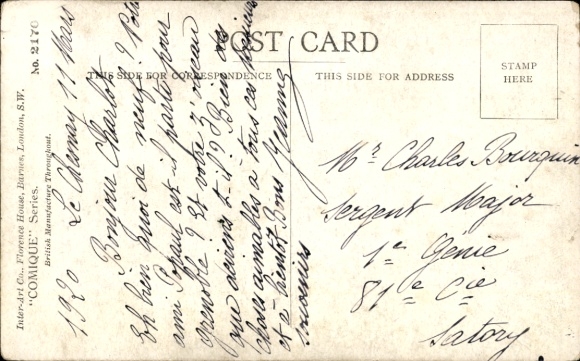 POST CARD
THIS SIDE FOR CORRESPONDENCE
THIS SIDE FOR ADDRESS
STAMP
HERE
Inter-Art Co., Florence House, Barnes, London, S.W.
"COMIQUE" Series.
No. 2170
British Manufacture Throughout.
1920 Le Chesnay 11 Mars
Bonjour Charlot
Eh bien quoi de neuf? Votre
ami Popaul est-il parti pour
Grenoble? Et votre
que devient-il? Bien des
choses aimables à tous ces
et à bientôt Bons
souvenirs
Jeanne
Mr Charles Bourquin
Sergent Major
1er Génie
81e Cie
Satory